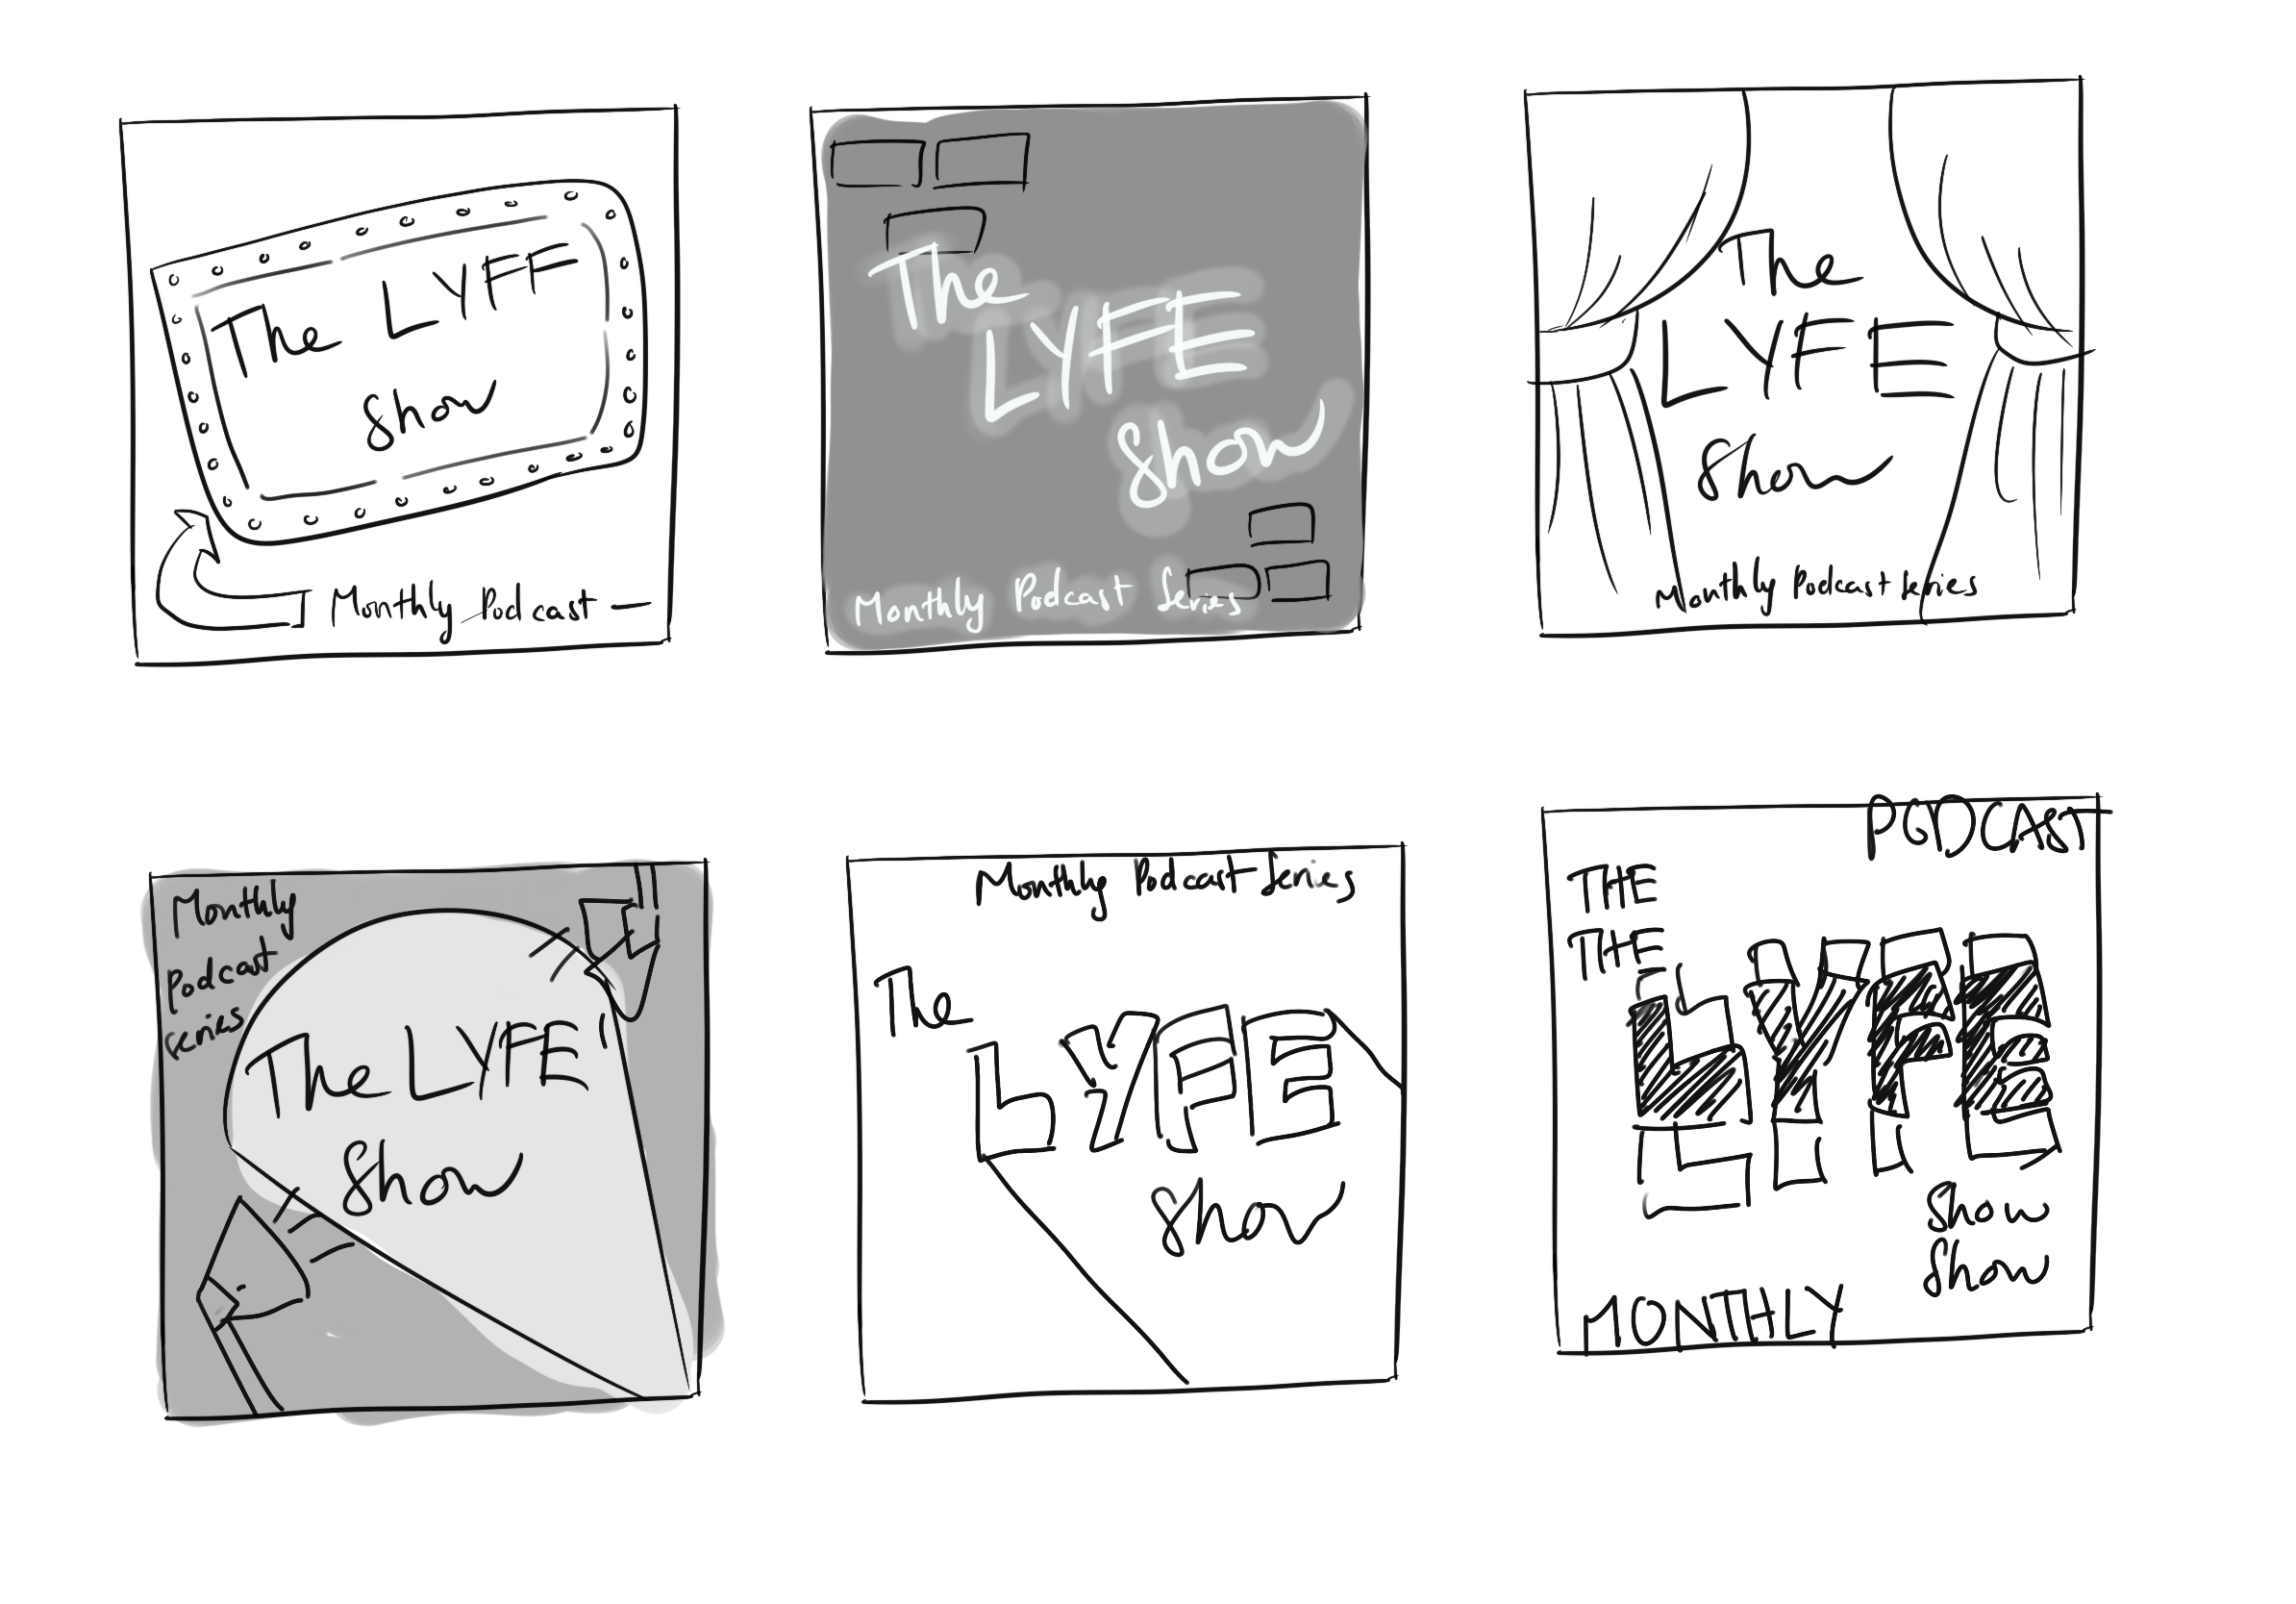 The LYFF
Show
Monthly Podcast
The
LYFE
Show
Monthly Podcast Series
The
LYFE
Show
Monthly Podcast Series
Monthly
Podcast
Series
The LYFE
Show
Monthly Podcast Series
The
LYFE
Show
PODCAST
THE
THE
LYFE
Show
Show
MONTHLY